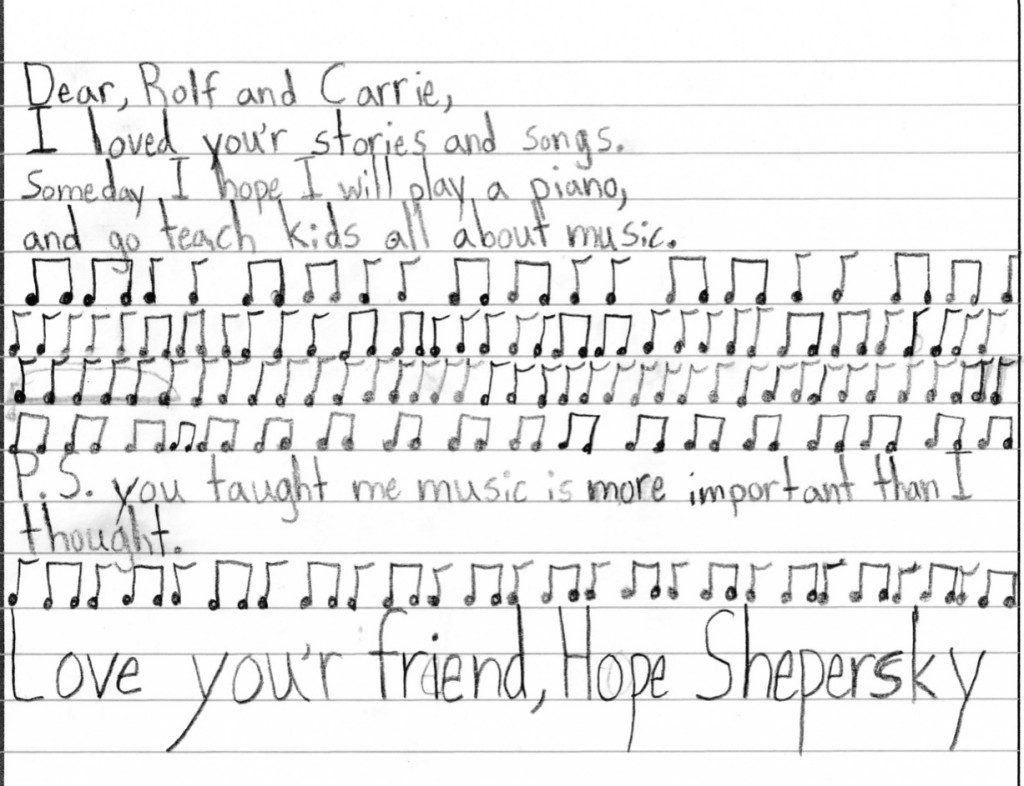 Dear, Rolf and Carrie,
I loved you'r stories and songs.
Someday I hope I will play a piano,
and go teach kids all about music.
P.S. you taught me music is more important than I
thought.
Love you'r friend, Hope Shepersky